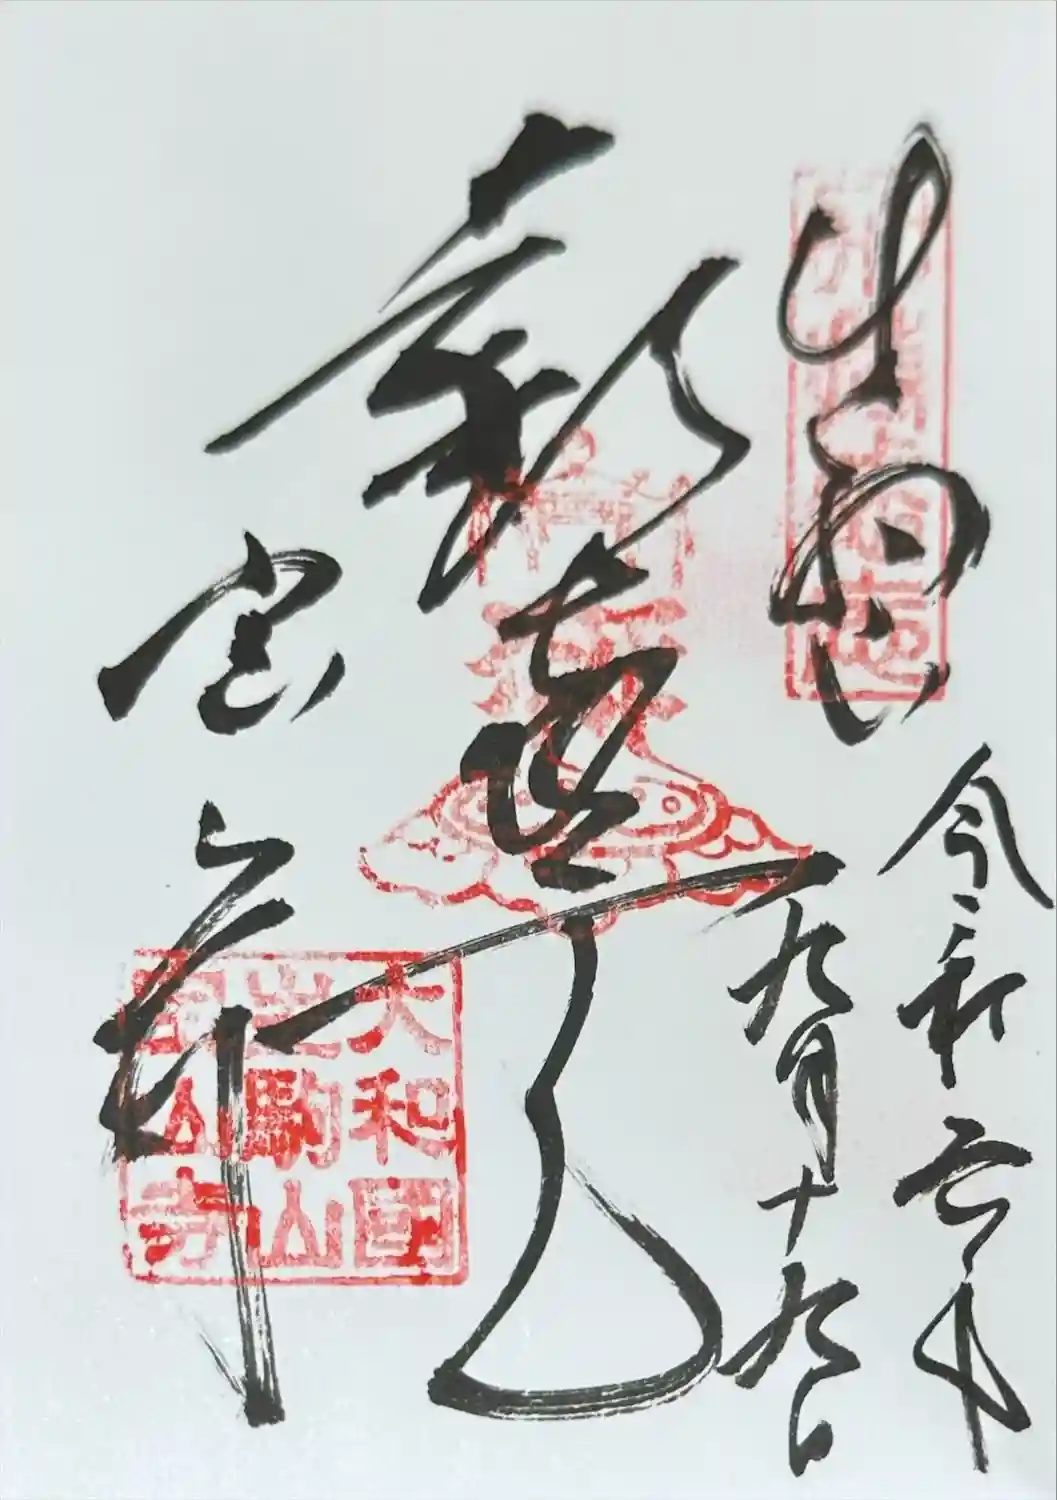 生駒山
令和六年
九月十九日
歓喜天
宝山寺
大和國
生駒山
寶山寺